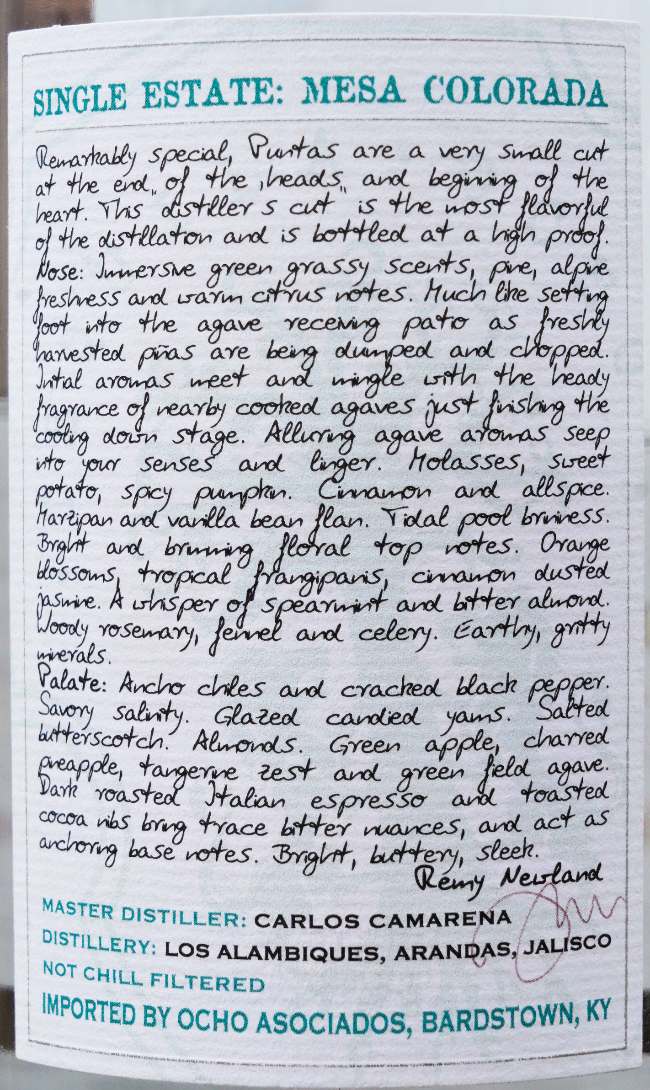 SINGLE ESTATE: MESA COLORADA
Remarkably special, Puntas are a very small cut
at the end „ of the ‚heads„ and beginning of the
heart. This distiller s cut is the most flavorful
of the distillation and is bottled at a high proof.
Nose: Immersive green grassy scents, pine, alpine
freshness and warm citrus notes. Much like setting
foot into the agave receiving patio as freshly
harvested piñas are being dumped and chopped.
Initial aromas meet and mingle with the heady
fragrance of nearby cooked agaves just finishing the
cooling down stage. Alluring agave aromas seep
into your senses and linger. Molasses, sweet
potato, spicy pumpkin. Cinnamon and allspice.
Marzipan and vanilla bean flan. Tidal pool brininess.
Bright and brimming floral top notes. Orange
blossoms, tropical frangipanis, cinnamon dusted
jasmine. A whisper of spearmint and bitter almond.
Woody rosemary, fennel and celery. Earthy, gritty
minerals.
Palate: Ancho chiles and cracked black pepper.
Savory salinity. Glazed candied yams. Salted
butterscotch. Almonds. Green apple, charred
pineapple, tangerine zest and green field agave.
Dark roasted Italian espresso and toasted
cocoa nibs bring trace bitter nuances, and act as
anchoring base notes. Bright, buttery, sleek.
Remy Newland
MASTER DISTILLER: CARLOS CAMARENA
DISTILLERY: LOS ALAMBIQUES, ARANDAS, JALISCO
NOT CHILL FILTERED
IMPORTED BY OCHO ASOCIADOS, BARDSTOWN, KY